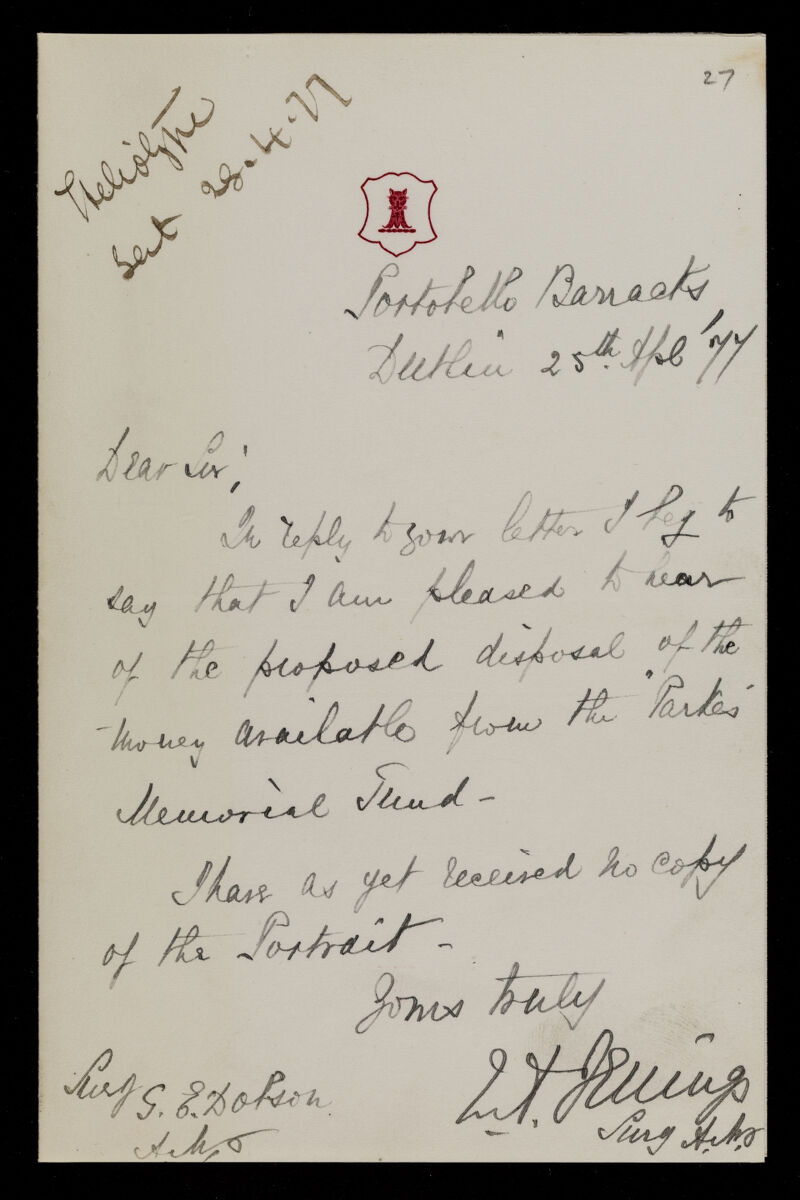 27
Heliotype
Sent 28.4.77
Portobello Barracks
Dublin 25th. Apl '77
Dear Sir,
In reply to your letter I beg to
say that I am pleased to hear
of the proposed disposal of the
money available from the "Parkes"
Memorial Fund -
I have as yet received no copy
of the Portrait -
Yours truly
Jennings
Surg A.M.D
Surg G. E. Dobson
A.M.D